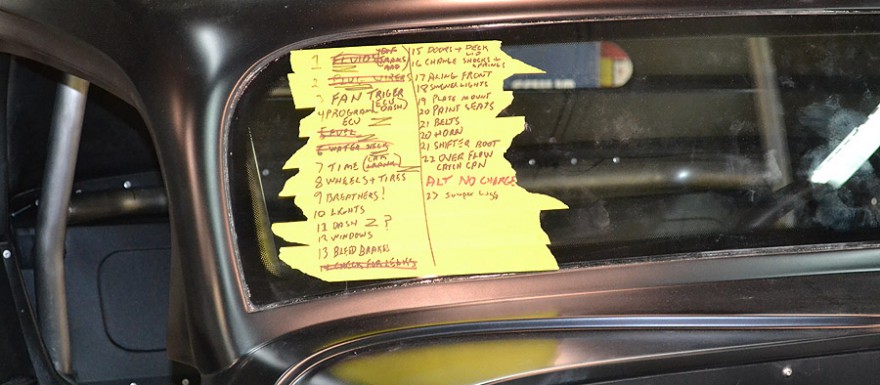 1 FLUIDS TRAN BRAKE RAD
2 PLUG WIRES
3 FAN TRIGER (ECU)
4 PROGRAM DASH)
ECU Z
5 FUEL
6 WATER NECK
7 TIME
8 WHEELS + TIRES
9 BREATHERS!
10 LIGHTS
12 DASH Z ?
12 WINDOWS
13 BLEED BRAKES
14 CHECK FOR LEAKS
15 DOORS + DECK
LID
16 CHANGE SHOCKS +
SPRINGS
17 ALING FRONT
18 SIGNER LIGHTS
19 PLATE MOUNT
20 PAINT SEATS
21 BELTS
20 HORN
21 SHIFTER BOOT
22 OVER FLOW
CATCH CAN
ALT NO CHARGE
23